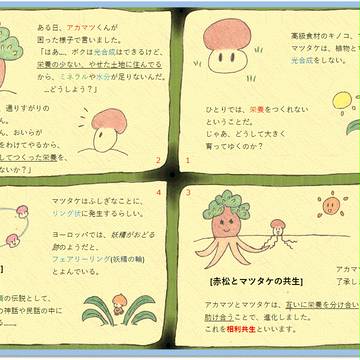 ある日、アカマツくんが
困った様子で言いました。
「はあ…、ボクは光合成はできるけど、
栄養の少ない、やせた土地に住んでる
から、ミネラルや水分が足りないんだ。
…どうしよう？」
通りすがりの
ん。
ん、おいらが
をわけてやるから、
してつくった栄養を、
ないか？」
2
高級食材のキノコ、マ
マツタケは、植物と
光合成をしない。
ひとりでは、栄養をつくれない
ということだ。
じゃあ、どうして大きく
育ってゆくのか？
1
マツタケはふしぎなことに、
リング状に発生するらしい。
ヨーロッパでは、妖精がおどる
跡のようだと、
フェアリーリング(妖精の輪)
とよんでいる。
術の伝説として、
の神話や民話の中に
る……。
4
3
[赤松とマツタケの共生]
アカマ
了承しま
アカマツとマツタケは、互いに栄養を分け合い
助け合うことで、進化しました。
これを相利共生といいます。